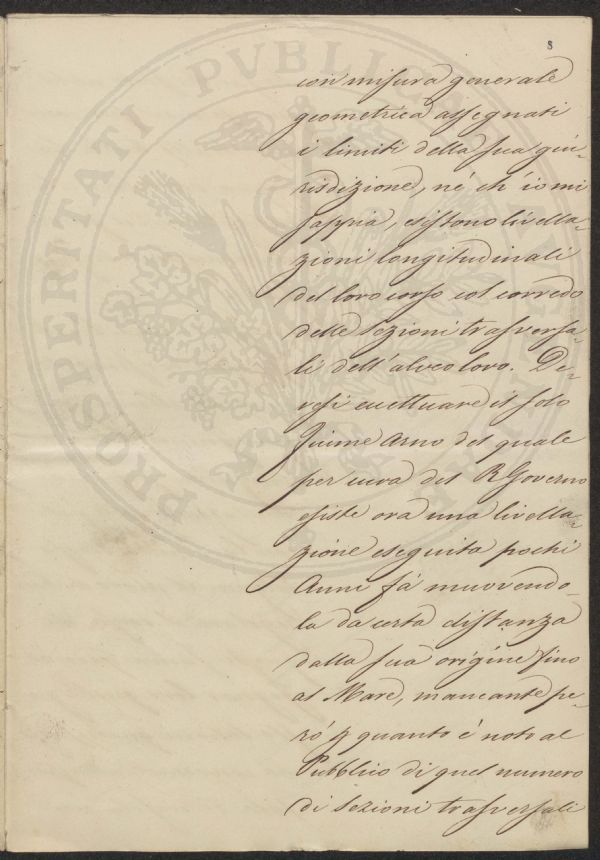 8
con misura generale
geometrica assegnati
i limiti della sua giu-
risdizione, nè ch'io mi
sappia, esistono livella-
zioni longitudinali
del loro corso col corredo
delle sezioni trasversa-
li dell'alveo loro. De-
vesi eccettuare il solo
fiume Arno del quale
per cura del R. Governo
esiste ora una livella-
zione eseguita pochi
Anni fà muovendo-
la da certa distanza
dalla sua origine fino
al Mare, mancante pe-
rò p quanto è noto al
Pubblico di quel numero
di sezioni trasversali
PROSPERITATI PVBLICAE AVGENDAE